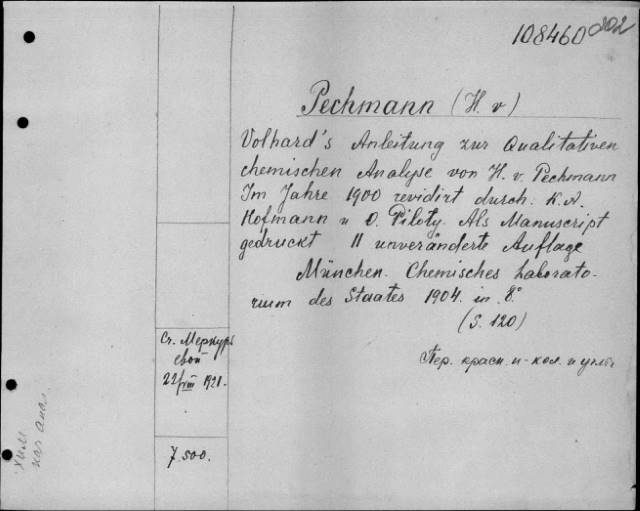 108460 202
Pechmann (H. v)
Volhard's Anleitung zur Qualitativen
chemischen Analyse von H. v. Pechmann
Im Jahre 1900 revidirt durch. K. A.
Hofmann u O. Piloty. Als Manuscript
gedruckt 11 unveränderte Auflage
München. Chemisches Laborato-
rium des Staates 1904. in 8°
(S. 120)
Пер. красн. и-кол. и углы
Сг. Меркурь
22/VIII 1921.
7.500.